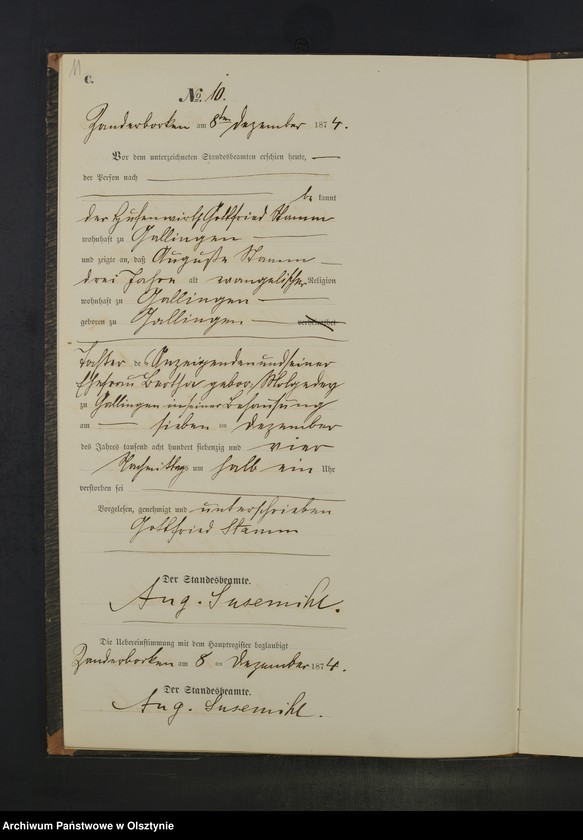 11
C.
№ 10.
Zanderborken am 8ten Dezember 1874.
Vor dem unterzeichneten Standesbeamten erschien heute,
der Person nach
be kannt
der Hufenwirth Gottfried Stamm
wohnhaft zu Gallingen
und zeigte an, daß Auguste Stamm
drei Jahre alt evangelischer Religion
wohnhaft zu Gallingen
geboren zu Gallingen verheirathet
Tochter de s Anzeigenden und seiner
Ehefrau Bertha gebor:
zu Gallingen in seiner Behausung
am sieben ten Dezember
des Jahres tausend acht hundert siebenzig und vier
Nachmittags um halb ein Uhr
verstorben sei
Vorgelesen, genehmigt und unterschrieben
Gottfried Stamm
Der Standesbeamte.
Aug. Susemihl.
Die Uebereinstimmung mit dem Hauptregister beglaubigt
Zanderborken am 8 ten Dezember 1874.
Der Standesbeamte.
Aug. Susemihl.
Archiwum Państwowe w Olsztynie